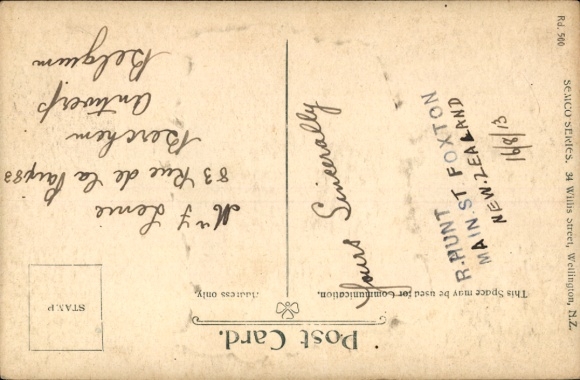 Post Card.
This Space may be used for Communication.
Address only.
STAMP
Yours Sincerally
R. HUNT
MAIN. ST FOXTON
NEW. ZEALAND
19/8/13
83 Rue de la Paix 83
Berchem
Antwerp
Belgium
Rd. 500
SEMCO SERIES. 34 Willis Street, Wellington, N.Z.